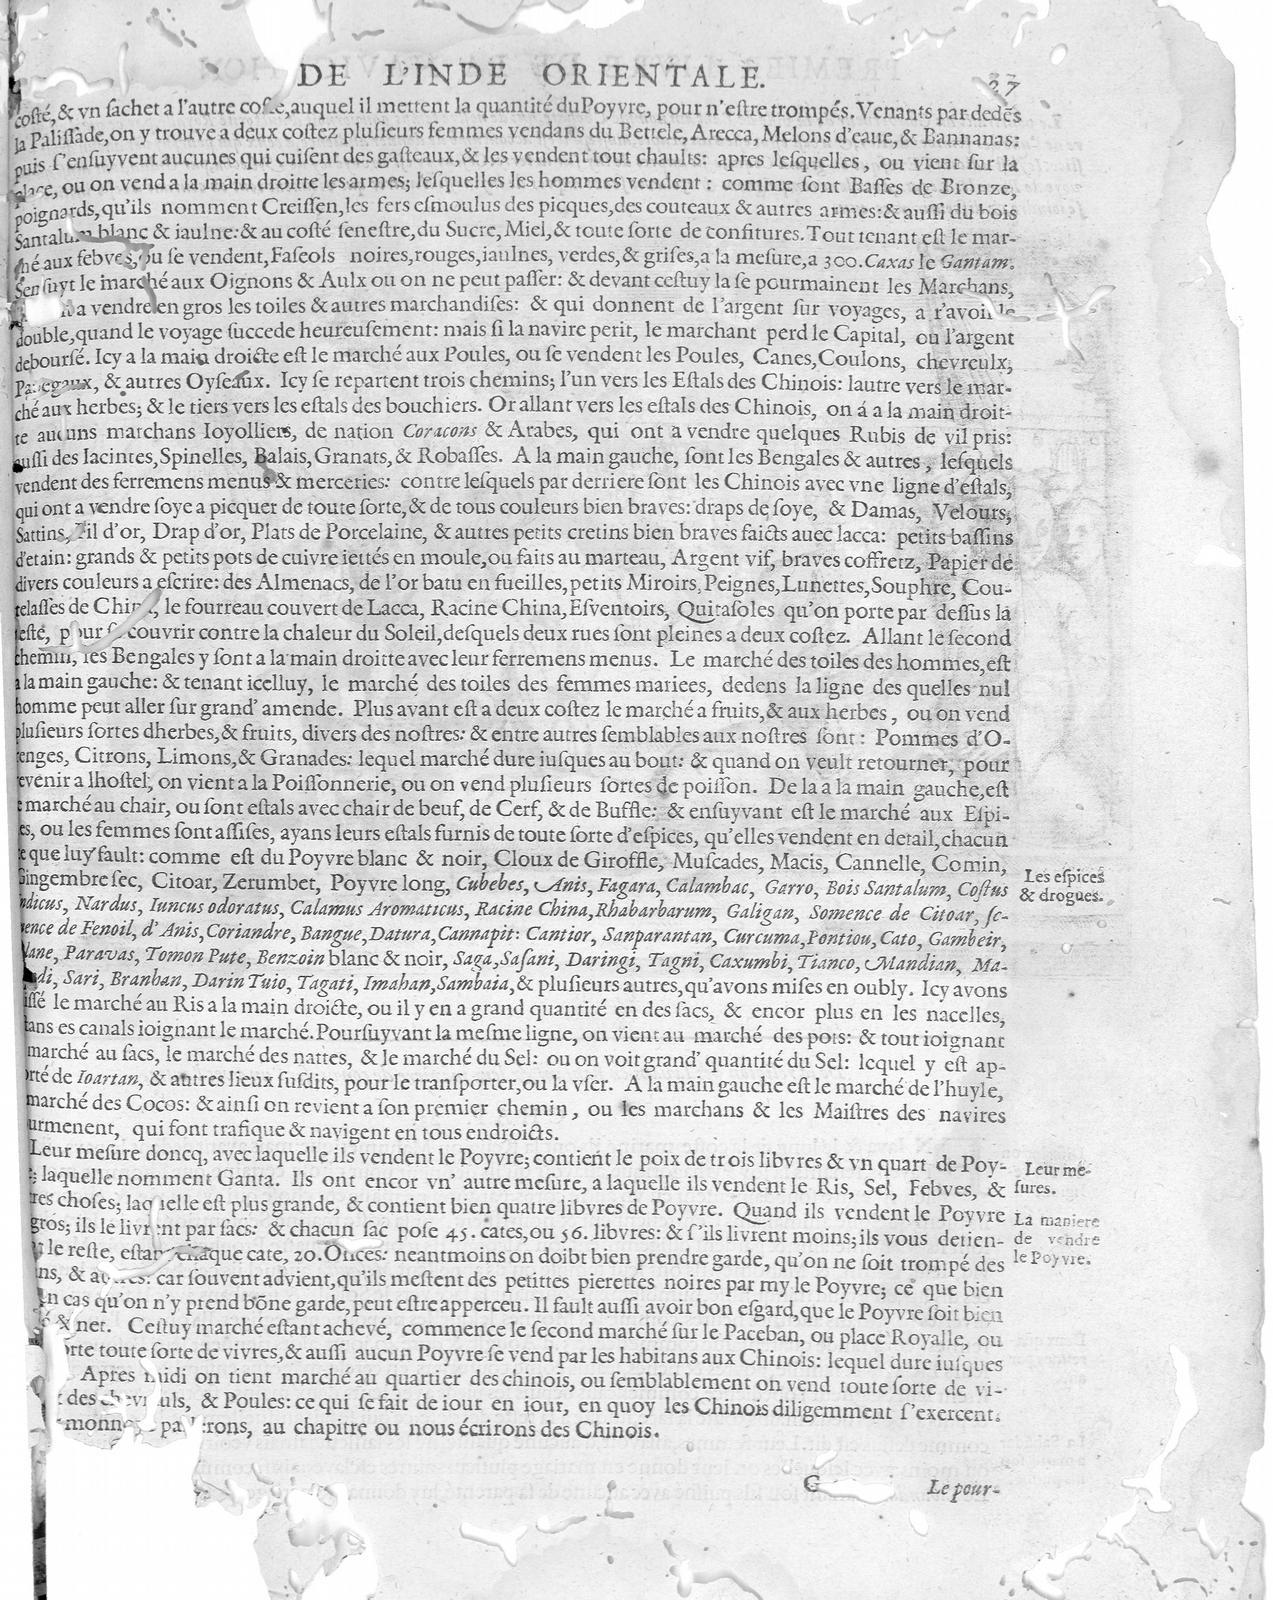 DE L'INDE ORIENTALE. 27
costé, & vn sachet a l'autre coste, auquel il mettent la quantité du Poyvre, pour n'estre trompés. Venants par dedēs
la Palissade, on y trouve a deux costez plusieurs femmes vendans du Bettele, Arecca, Melons d'eaue, & Bannanas:
puis s'ensuyvent aucunes qui cuisent des gasteaux, & les vendent tout chaults: apres lesquelles, ou vient sur la
place, ou on vend a la main droitte les armes; lesquelles les hommes vendent: comme sont Basses de Bronze,
poignards, qu'ils nomment Creissen, les fers esmoulus des picques, des couteaux & autres armes: & aussi du bois
Santalum blanc & iaulne: & au costé senestre, du Sucre, Miel, & toute sorte de confitures. Tout tenant est le mar-
ché aux febves, ou se vendent, Faseols noires, rouges, iaulnes, verdes, & grises, a la mesure, a 300. Caxas le Gantam.
Sensuyt le marché aux Oignons & Aulx ou on ne peut passer: & devant cestuy la se pourmainent les Marchans,
a vendre en gros les toiles & autres marchandises: & qui donnent de l'argent sur voyages, a r'avoir le
double, quand le voyage succede heureusement: mais si la navire perit, le marchant perd le Capital, ou l'argent
deboursé. Icy a la main droicte est le marché aux Poules, ou se vendent les Poules, Canes, Coulons, chevreulx,
Papegaux, & autres Oyseaux. Icy se repartent trois chemins; l'un vers les Estals des Chinois: lautre vers le mar-
ché aux herbes; & le tiers vers les estals des bouchiers. Or allant vers les estals des Chinois, on á a la main droit-
te aucuns marchans Ioyolliers, de nation Coracons & Arabes, qui ont a vendre quelques Rubis de vil pris:
aussi des Iacintes, Spinelles, Balais, Granats, & Robasses. A la main gauche, sont les Bengales & autres, lesquels
vendent des ferremens menus & merceries: contre lesquels par derriere sont les Chinois avec vne ligne d'estals,
qui ont a vendre soye a picquer de toute sorte, & de tous couleurs bien braves: draps de soye, & Damas, Velours,
Sattins, Fil d'or, Drap d'or, Plats de Porcelaine, & autres petits cretins bien braves faicts auec lacca: petits bassins
d'etain: grands & petits pots de cuivre iettés en moule, ou faits au marteau, Argent vif, braves coffretz, Papier de
divers couleurs a escrire: des Almenacs, de l'or batu en fueilles, petits Miroirs, Peignes, Lunettes, Souphre, Cou-
telasses de China, le fourreau couvert de Lacca, Racine China, Esventoirs, Quitasoles qu'on porte par dessus la
testé, pour se couvrir contre la chaleur du Soleil, desquels deux rues sont pleines a deux costez. Allant le second
chemin, les Bengales y sont a la main droitte avec leur ferremens menus. Le marché des toiles des hommes, est
a la main gauche: & tenant icelluy, le marché des toiles des femmes mariees, dedens la ligne des quelles nul
homme peut aller sur grand' amende. Plus avant est a deux costez le marché a fruits, & aux herbes, ou on vend
plusieurs sortes dherbes, & fruits, divers des nostres: & entre autres semblables aux nostres sont: Pommes d'O-
renges, Citrons, Limons, & Granades: lequel marché dure iusques au bout: & quand on veult retourner, pour
revenir a lhostel, on vient a la Poissonnerie, ou on vend plusieurs sortes de poisson. De la a la main gauche, est
e marché au chair, ou sont estals avec chair de beuf, de Cerf, & de Buffle: & ensuyvant est le marché aux Espi-
es, ou les femmes sont assises, ayans leurs estals furnis de toute sorte d'espices, qu'elles vendent en detail, chacun
ce que luy fault: comme est du Poyvre blanc & noir, Cloux de Giroffle, Muscades, Macis, Cannelle, Comin,
Gingembre sec, Citoar, Zerumbet, Poyvre long, Cubebes, Anis, Fagara, Calambac, Garro, Bois Santalum, Costus
Les espices
& drogues.
ndicus, Nardus, Iuncus odoratus, Calamus Aromaticus, Racine China, Rhabarbarum, Galigan, Somence de Citoar, se-
mence de Fenoil, d'Anis, Coriandre, Bangue, Datura, Cannapit: Cantior, Sanparantan, Curcuma, Pontiou, Cato, Gambeir,
lane, Paravas, Tomon Pute, Benzoin blanc & noir, Saga, Sasani, Daringi, Tagni, Caxumbi, Tianco, Mandian, Ma-
di, Sari, Branban, Darin Tuio, Tagati, Imahan, Sambaia, & plusieurs autres, qu'avons mises en oubly. Icy avons
issé le marché au Ris a la main droicte, ou il y en a grand quantité en des sacs, & encor plus en les nacelles,
tans es canals ioignant le marché. Poursuyvant la mesme ligne, on vient au marché des pots: & tout ioignant
marché au sacs, le marché des nattes, & le marché du Sel: ou on voit grand' quantité du Sel: lequel y est ap-
orté de Ioartan, & autres lieux susdits, pour le transporter, ou la vser. A la main gauche est le marché de l'huyle,
marché des Cocos: & ainsi on revient a son premier chemin, ou les marchans & les Maistres des navires
urmenent, qui font trafique & navigent en tous endroicts.
Leur mesure doncq, avec laquelle ils vendent le Poyvre; contient le poix de trois libvres & vn quart de Poy-
Leur me-
sures.
; laquelle nomment Ganta. Ils ont encor vn' autre mesure, a laquelle ils vendent le Ris, Sel, Febves, &
res choses; laquelle est plus grande, & contient bien quatre libvres de Poyvre. Quand ils vendent le Poyvre
La maniere
de vendre
le Poyvre.
gros; ils le livrent par sacs: & chacun sac pose 45. cates, ou 56. libvres: & s'ils livrent moins; ils vous detien-
le reste, estant chaque cate, 20. Onces: neantmoins on doibt bien prendre garde, qu'on ne soit trompé des
ns, & autres: car souvent advient, qu'ils mestent des petittes pierettes noires par my le Poyvre; ce que bien
en cas qu'on n'y prend bōne garde, peut estre apperceu. Il fault aussi avoir bon esgard, que le Poyvre soit bien
& net. Cestuy marché estant achevé, commence le second marché sur le Paceban, ou place Royalle, ou
orte toute sorte de vivres, & aussi aucun Poyvre se vend par les habitans aux Chinois: lequel dure iusques
Apres midi on tient marché au quartier des chinois, ou semblablement on vend toute sorte de vi-
des chevreuls, & Poules: ce qui se fait de iour en iour, en quoy les Chinois diligemment s'exercent.
monn parlerons, au chapitre ou nous écrirons des Chinois.
G Le pour-